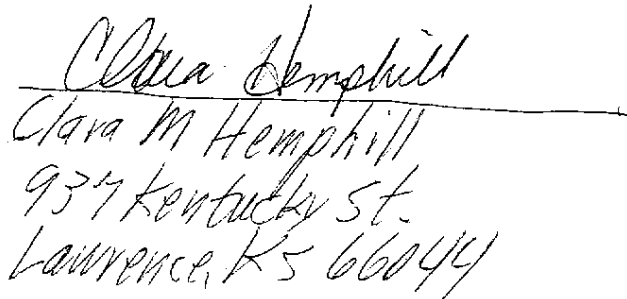 Clara Hemphill
Clara M Hemphill
937 Kentucky St.
Lawrence, Ks 66044